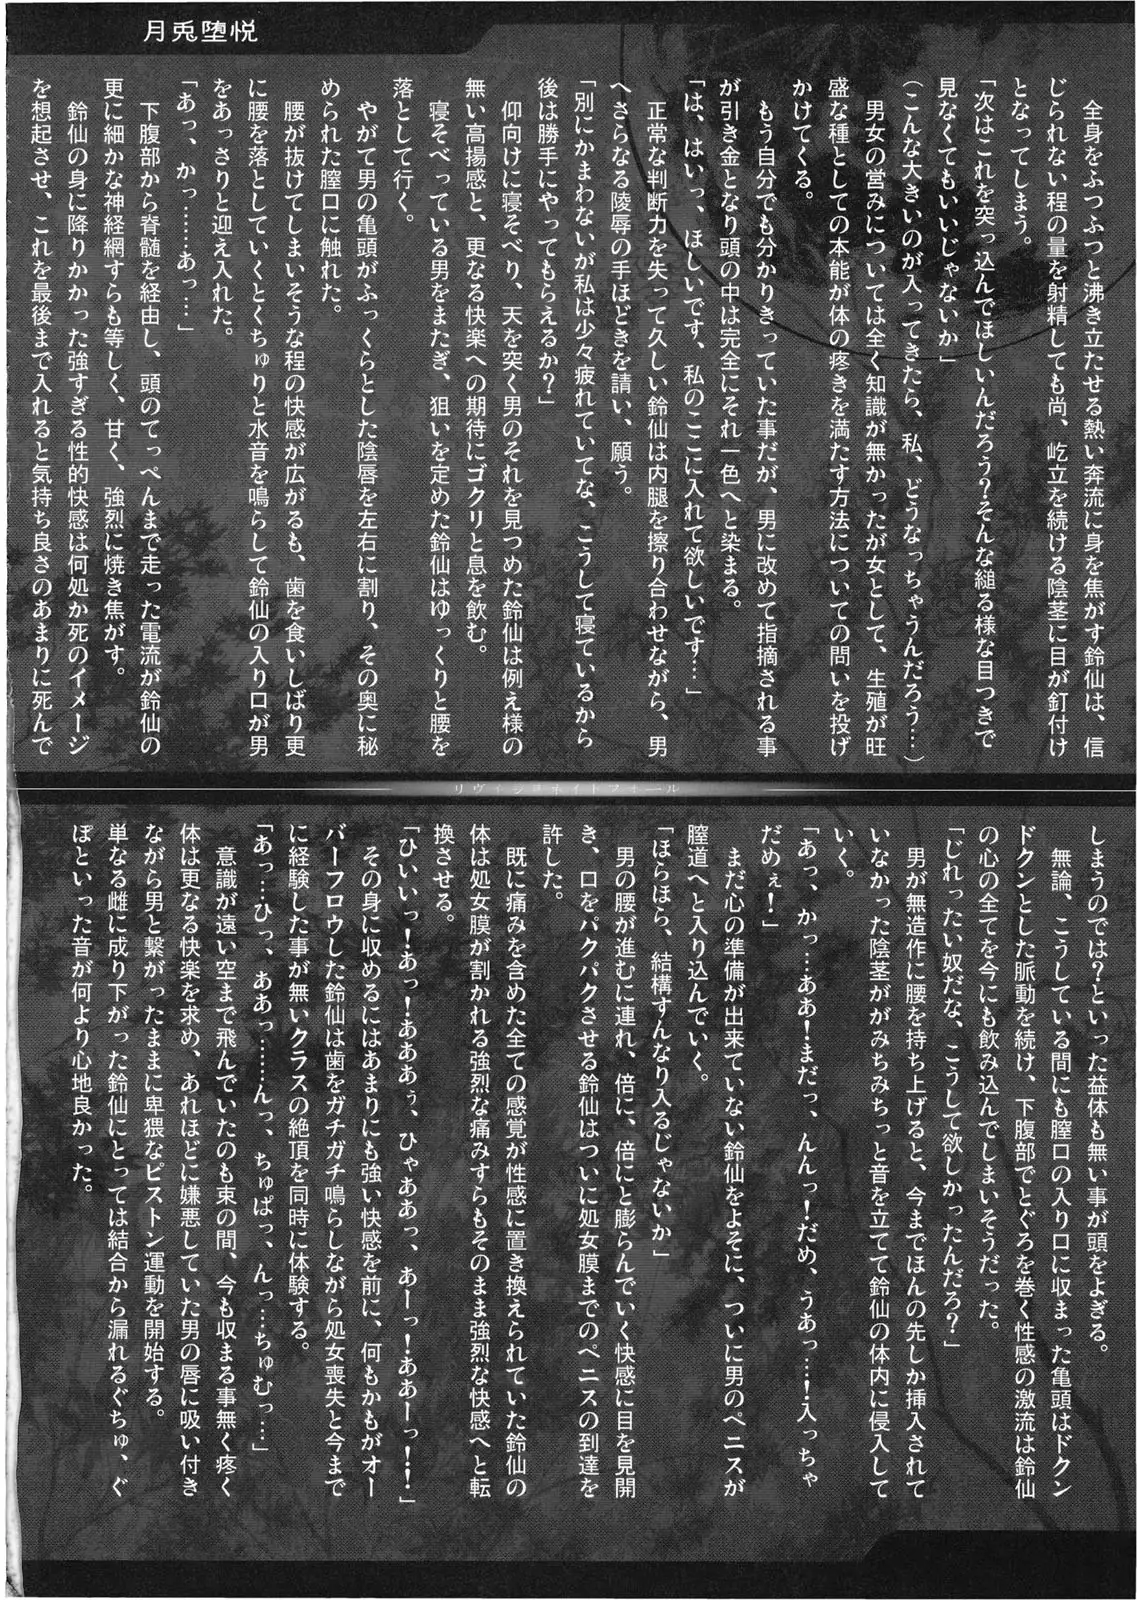 月兎堕悦
全身をふつふつと沸き立たせる熱い奔流に身を焦がす鈴仙は、信
じられない程の量を射精しても尚、屹立を続ける陰茎に目が釘付け
となってしまう。
「次はこれを突っ込んでほしいんだろう？そんな縋る様な目つきで
見なくてもいいじゃないか」
（こんな大きいのが入ってきたら、私、どうなっちゃうんだろう…）
男女の営みについては全く知識が無かったが女として、生殖が旺
盛な種としての本能が体の疼きを満たす方法についての問いを投げ
かけてくる。
もう自分でも分かりきっていた事だが、男に改めて指摘される事
が引き金となり頭の中は完全にそれ一色へと染まる。
「は、はいっ、ほしいです、私のここに入れて欲しいです…」
正常な判断力を失って久しい鈴仙は内腿を擦り合わせながら、男
へさらなる陵辱の手ほどきを請い、願う。
「別にかまわないが私は少々疲れていてな、こうして寝ているから
後は勝手にやってもらえるか？」
仰向けに寝そべり、天を突く男のそれを見つめた鈴仙は例え様の
無い高揚感と、更なる快楽への期待にゴクリと息を飲む。
寝そべっている男をまたぎ、狙いを定めた鈴仙はゆっくりと腰を
落として行く。
やがて男の亀頭がふっくらとした陰唇を左右に割り、その奥に秘
められた膣口に触れた。
腰が抜けてしまいそうな程の快感が広がるも、歯を食いしばり更
に腰を落としていくとくちゅりと水音を鳴らして鈴仙の入り口が男
をあっさりと迎え入れた。
「あっ、かっ……あっ…」
下腹部から脊髄を経由し、頭のてっぺんまで走った電流が鈴仙の
更に細かな神経網すらも等しく、甘く、強烈に焼き焦がす。
鈴仙の身に降りかかった強すぎる性的快感は何処か死のイメージ
を想起させ、これを最後まで入れると気持ち良さのあまりに死んで
リヴィジョネイドフォール
しまうのでは？といった益体も無い事が頭をよぎる。
無論、こうしている間にも膣口の入り口に収まった亀頭はドクン
ドクンとした脈動を続け、下腹部でとぐろを巻く性感の激流は鈴仙
の心の全てを今にも飲み込んでしまいそうだった。
「じれったい奴だな、こうして欲しかったんだろ？」
男が無造作に腰を持ち上げると、今までほんの先しか挿入されて
いなかった陰茎ががみちみちっと音を立てて鈴仙の体内に侵入して
いく。
「あっ、かっ…ああ！まだっ、んんっ！だめ、うあっ…！入っちゃ
だめぇ！」
まだ心の準備が出来ていない鈴仙をよそに、ついに男のペニスが
膣道へと入り込んでいく。
「ほらほら、結構すんなり入るじゃないか」
男の腰が進むに連れ、倍に、倍にと膨らんでいく快感に目を見開
き、口をパクパクさせる鈴仙はついに処女膜までのペニスの到達を
許した。
既に痛みを含めた全ての感覚が性感に置き換えられていた鈴仙の
体は処女膜が割かれる強烈な痛みすらもそのまま強烈な快感へと転
換させる。
「ひいいっ！あっ！あああぅ、ひゃああっ、あーっ！ああーっ！！」
その身に収めるにはあまりにも強い快感を前に、何もかもがオー
バーフロウした鈴仙は歯をガチガチ鳴らしながら処女喪失と今まで
に経験した事が無いクラスの絶頂を同時に体験する。
「あっ…ひっ、ああっ……んっ、ちゅぱっ、んっ…ちゅむっ…」
意識が遠い空まで飛んでいたのも束の間、今も収まる事無く疼く
体は更なる快楽を求め、あれほどに嫌悪していた男の唇に吸い付き
ながら男と繋がったままに卑猥なピストン運動を開始する。
単なる雌に成り下がった鈴仙にとっては結合から漏れるぐちゅ、ぐ
ぽといった音が何より心地良かった。